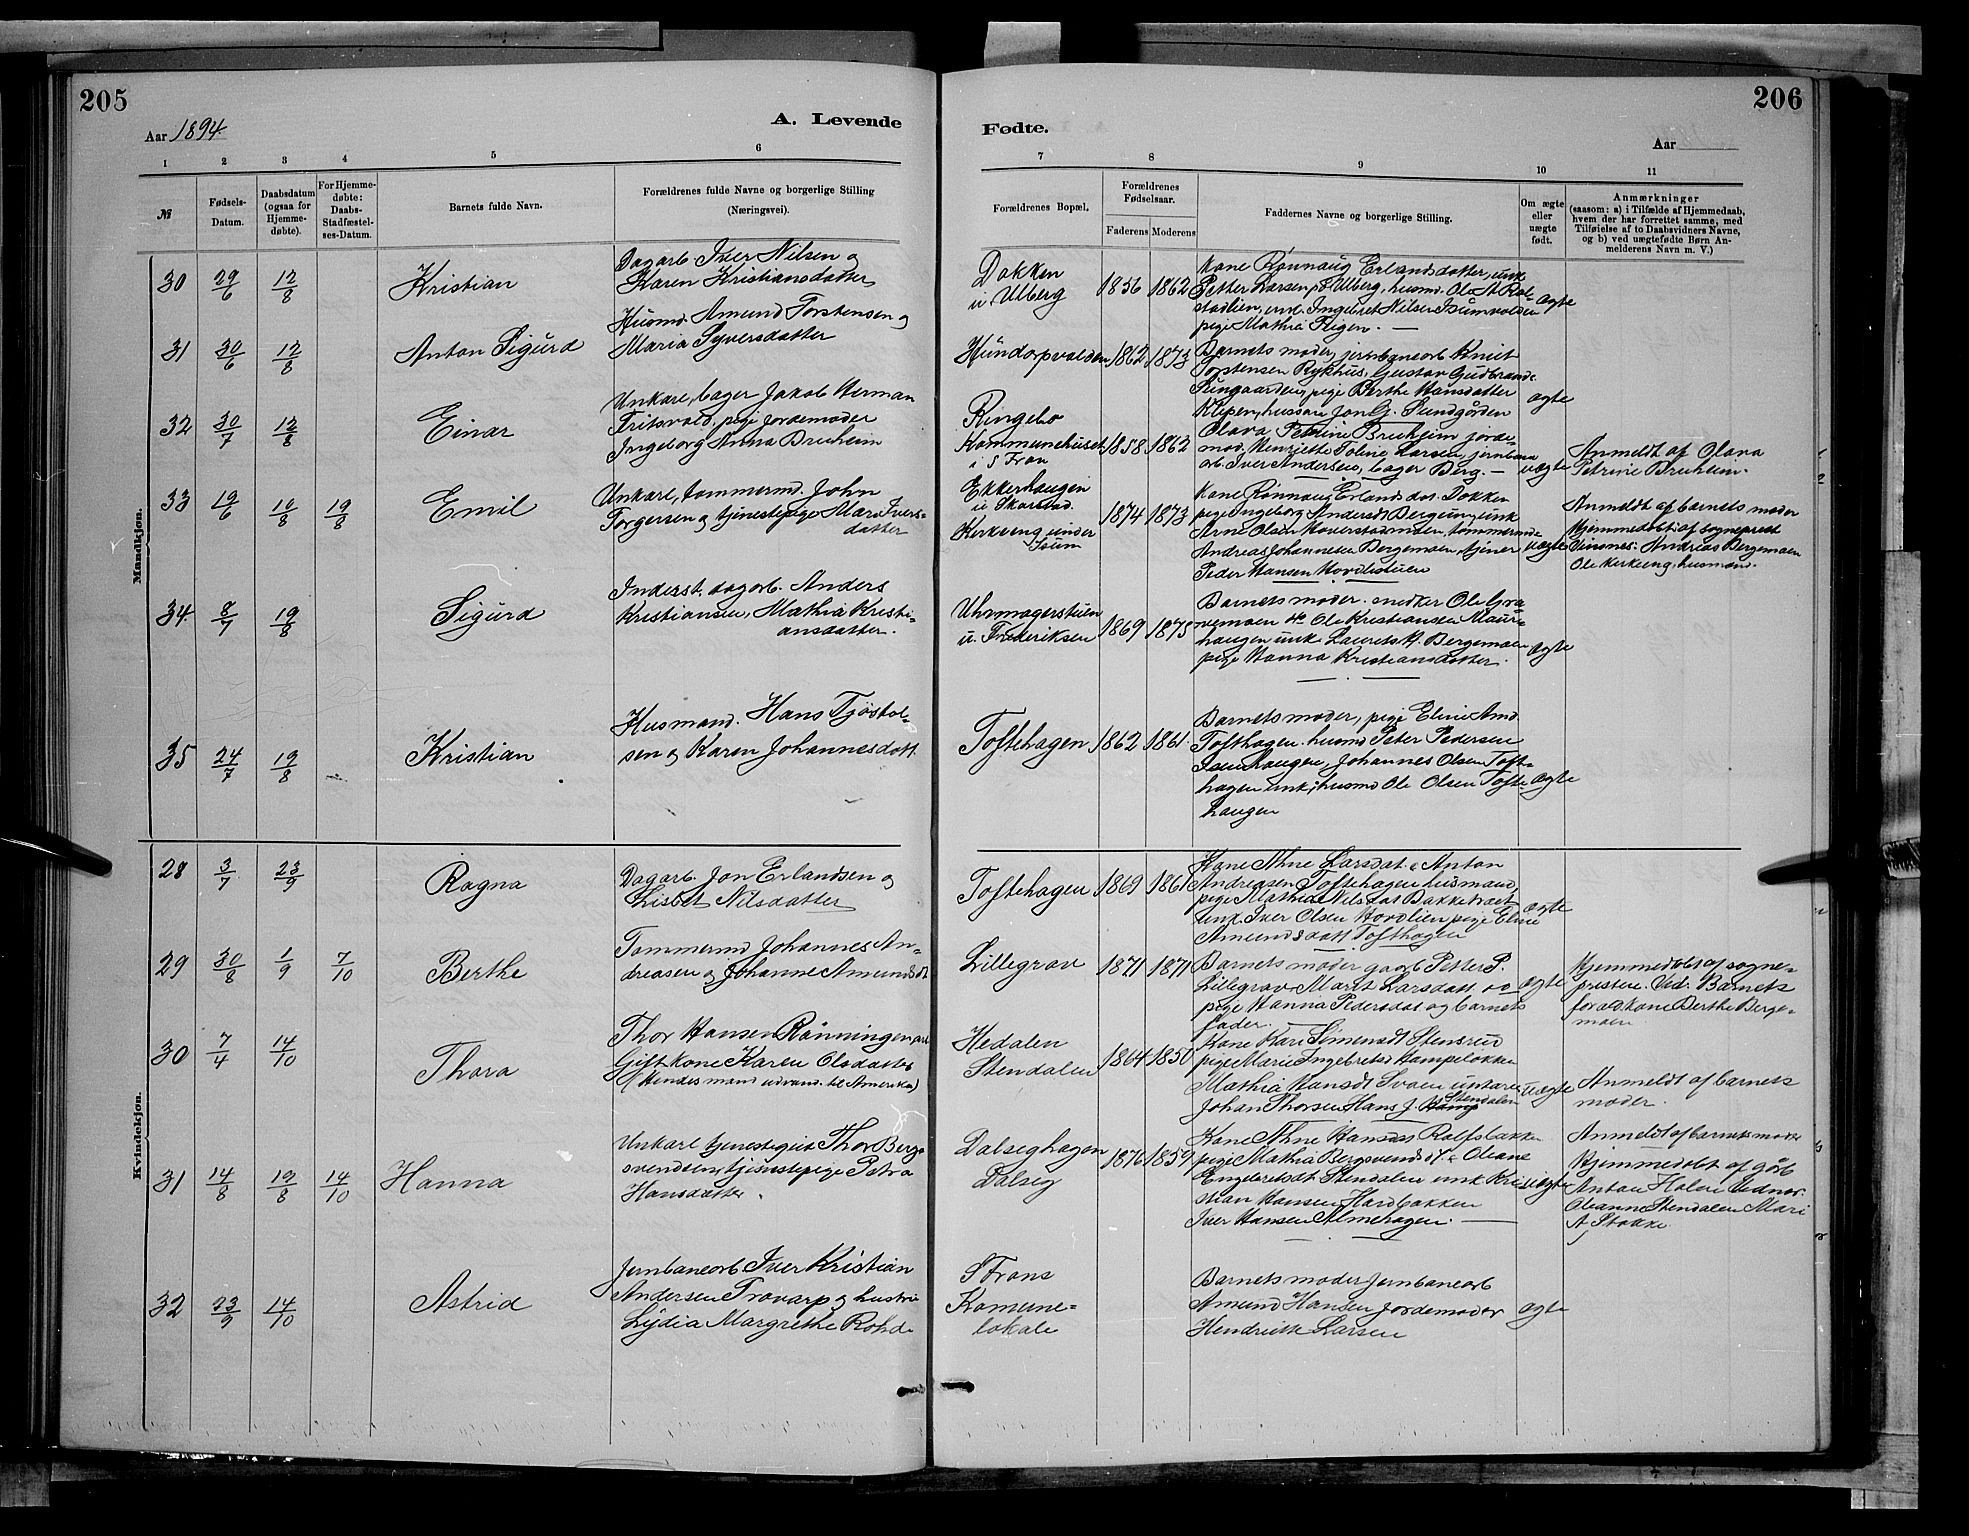 205
206
Aar 1894
A. Levende
Fødte.
Aar
1 2 3 4 5 6 7 8 9 10 11
№
Fødsels-
Datum.
Daabsdatum
(ogsaa for
Hjemme-
døbte).
For Hjemme-
døbte:
Daabs-
Stadfæstel-
ses-Datum.
Barnets fulde Navn.
Forældrenes fulde Navne og borgerlige Stilling
(Næringsvei).
Forældrenes Bopæl.
Forældrenes
Fødselsaar.
Faderens Moderens
Faddernes Navne og borgerlige Stilling.
Om ægte
eller
uægte
født.
Anmærkninger
(saasom: a) i Tilfælde af Hjemmedaab,
hvem der har forrettet samme, med
Tilføielse af to Daabsvidners Navne,
og b) ved uægtefødte Børn An-
melderens Navn m. V.)
Mandkjøn.
30 29/6 12/8 Kristian
Dagarb. Iver Nilsen og
Karen Kristiansdatter
Dokken
u Ulberg
1856 1862
Kone Rønnaug Erlandsdatter, unk
Petter Larsen Ulberg, husmd. Ole
stadlien, und. Ingebret Nilsen Isumvolden
pige Mathia Flegen. —
ægte
31 30/6 12/8 Anton Sigurd
Husmd. Amund Torstensen og
Maria Syversdatter
Hundorpvolden
1862 1873
Barnets moder, jernbanearb Knut
Torstensen Rykhus, Gustav Gudbrands.
Sungaarden, pige Berthe Hansdatter
Klepen, husar Jon G. Sundgården
ægte
32 30/7 12/8 Einar
Unkarl, bager Jakob Herman
Fritsvold, pige Jordemoder
Ingeborg Anna Bruheim
Ringebo
Kommunehuset
i S Fron
1858 1862
Olava Petrine Bruheim jorde-
mod. Henriette Toline Larsen, jernbane
arb. Iver Andersen, bager Berg. —
uægte
Anmeldt af Olava
Petrine Bruheim.
33 19/6 10/8 19/8 Emil
Unkarl, tømmermd. John
Torgersen og tjenestepige Mari Ivers-
datter
Ekkerhaugen
u Skarstad.
Kirkveng under
Isum
1874 1873
Kone Rønnaug Erlandsdat. Dokken
pige Ingeborg Andersdt Bergum, unk
Arne Olsen Hoverstadmoen, tømmermd
Andreas Johannesen Bergemoen, tjener
Peder Hansen Hovdestuen
uægte
Anmeldt af barnets moder
Hjemmedøbt af sogneprest
Vinsnes: Andreas Bergemoen
Ole Kirkeeng, husmænd.
34 8/7 19/8 Sigurd
Inderst, dagarb. Anders
Kristiansen, Mathia Kristi-
ansdatter.
Uhrmagerstuen
u. Frederiksen
1869 1875
Barnets moder. snedker Ole Gra
vemoen Ole Kristiansen Maur-
haugen unk Laurets H. Bergemoen
pige Hanna Kristiansdatter.
ægte
35 24/7 19/8 Kristian
Husmand. Hans Tjøstol-
sen og Karen Johannesdatt
Toftehagen
1862 1861
Barnets moder, pige Eline Amd.
Tofthagen. husmd Peter Pedersen
Isumhaugen, Johannes Olsen Toft-
hagen unk, husmd Ole Olsen Tofte-
haugen
ægte
Kvindekjøn.
28 3/7 23/9 Ragna
Dagarb. Jon Erlandsen og
Lisbet Nilsdatter
Toftehagen
1869 1861
Kone Ahne Larsdat. Anton
Andreasen Toftehagen husmand,
pige Mathia Nilsdat Bakketræet
unk. Iver Olsen Hovdlien, pige Eline
Amundsdatt Tofthagen
ægte
29 30/8 1/9 7/10 Berthe
Tømmermd Johannes An-
dreasen og Johanne Amundsdt
Lillegrav
1871 1871
Barnets moder gaarb Petter P.
Lillegrav Marit Larsdatt
pige Hanna Pedersdat og barnets
fader. —
ægte
Hjemmedøbt af sogne-
presten. Vid. Barnets
foræld. kone Berthe Berge-
moen
30 7/4 14/10 Thora
Thor Hansen Rønningen
Gift kone Karen Olsdatter
(Hendes mand udvand. til Amerika)
Hedalen
Stendalen
1864 1850
Kone Kari Simensdt Stensrud
pige Marie Ingebretsdt Hampeløkken
Mathia Hansdt Svoen unkarer
Johan Thorsen Hans J. Stendalen
uægte
Anmeldt af barnets
moder.
31 14/8 19/8 14/10 Hanna
Unkarl tjenestegut Thor Berg-
svendsen, tjenestepige Petra
Hansdatter.
Dalseghagen
Dalseg
1876 1859
Kone Ahne Hansdt Rolfsløkken
pige Mathia Bergsvendsdt. Oleane
Engebretsdt Stendalen unk Kri
stian Hansen Hardbakken
Iver Hansen Almehagen. —
uægte
Anmeldt af barnets moder
Hjemmedøbt af gdb
Anton Holen Vidner.
Oleanne Stendalen Mari
A. Stokke.
32 23/9 14/10 Astrid
Jernbanearb Iver Kristian
Andersen Trovarp og hustru
Lydia Margrethe Rohde
S Frons
Komune-
lokale
Barnets moder Jernbanearb
Amund Hansen Jordemoder
Hendrikke Larsen
ægte